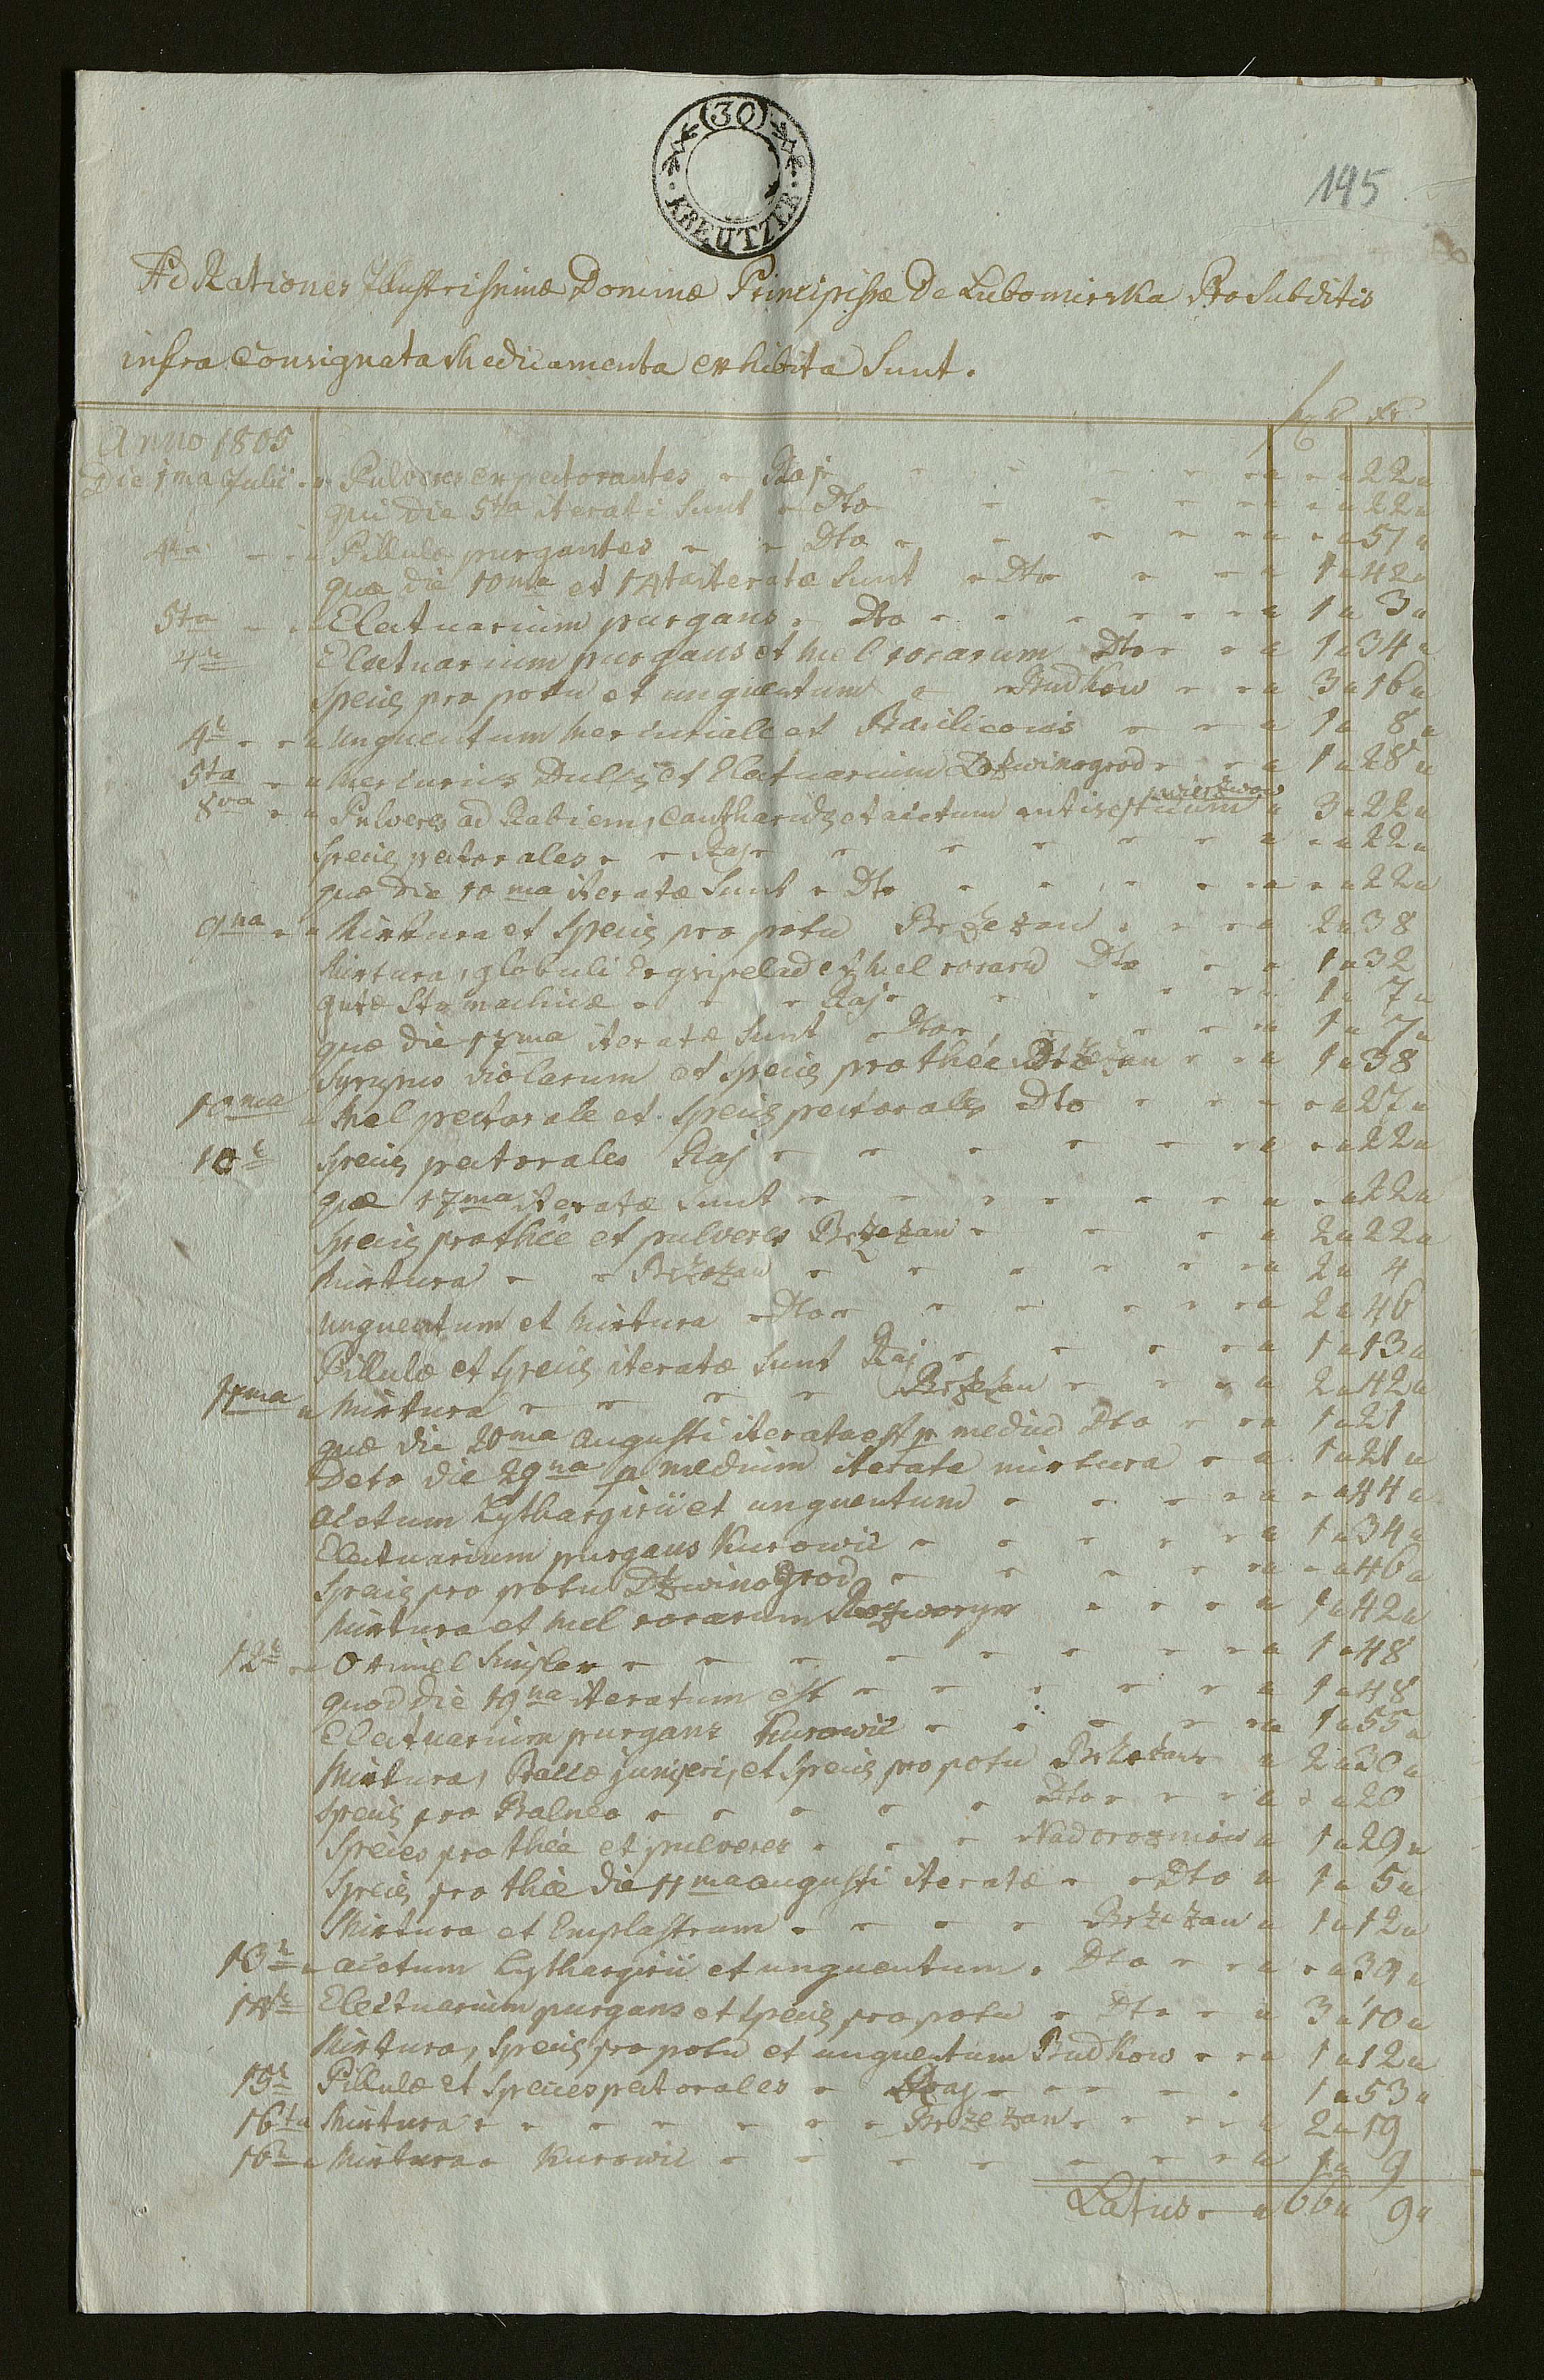 30
KREUTZER
195
Ad Rationes Illustrissimæ Dominæ Principissæ De Lubomirska Pro Subditis
infra Consignata Medicamenta exhibita Sunt.
f xr
Anno 1805
Die 1ma Julii Pulveres expectorantes Raj 22
qui die 5ta iterati Sunt Dto 22
4ta Pillulæ purgantes Dto 51
quæ die 10ma et 14ta iteratæ Sunt Dto 1 42
5ta Electuarium purgans Dto 1 3
4t Electuarium purgans et mel rosarum Dto 1 34
Species pro potu et unguentum Budkow 3 16
4t Unguentum mercuriale et Basiliconis 1 8
5ta Mercurius Dulcis et Electuarium Dzwinogrod 1 28
8va Pulveres ad Rabiem, Cantharides et acetum antisepticum 3 22
Species pectorales Raj 22
quæ die 10ma iteratæ Sunt Dto 22
9na Mixtura et Species pro potu Brzezan 2 38
Mixtura, globuli et mel rosarum Dto 1 32
gutæ Stomachicæ Raj 1 7
quæ die 17ma iteratæ Sunt Dto 1 7
Syrupus violarum et Species pro thée Brzezan 1 38
10ma Mel pectorale et Species pectorales Dto 27
10t Species pectorales Raj 22
quæ 17ma iteratæ Sunt 22
Species pro thée et pulveres Brzezan 2 22
Mixtura Brzezan 2 4
Unguentum et Mixtura Dto 2 46
Pillulæ et Species iteratæ Sunt Raj 1 13
11ma Mixtura Brzezan 2 42
quæ die 20ma Augusti iterata est p mediu Dto 1 21
Deto die 29na p medium iterata mixtura 1 21
Acetum Lythargirii et unguentum 44
Electuarium purgans Kurowic 1 34
Species pro potu Dzwinogrod 46
Mixtura et mel rosarum 1 42
12t Oximel Simplex 1 48
quod die 19na iteratum est 1 48
Electuarium purgans Kurowic 1 55
Mixtura, Baccæ juniperi, et Species pro potu Brzezan 2 30
Species pro Balneo Dto 20
Species pro thée et pulveres Nadorozniow 1 29
Species pro thée die 11ma augusti iteratæ Dto 1 5
Mixtura et Emplastrum Brzezan 1 12
13t Acetum Lythargirii et unguentum Dto 39
14t Electuarium purgans et Species pro potu Dto 3 10
Mixtura, Species pro potu et unguentum Budkow 1 12
15t Pillulæ et Species pectorales Raj 1 53
16ta Mixtura Brzezan 2 19
16t Mixtura Kurowic 1 9
Latus 66 9